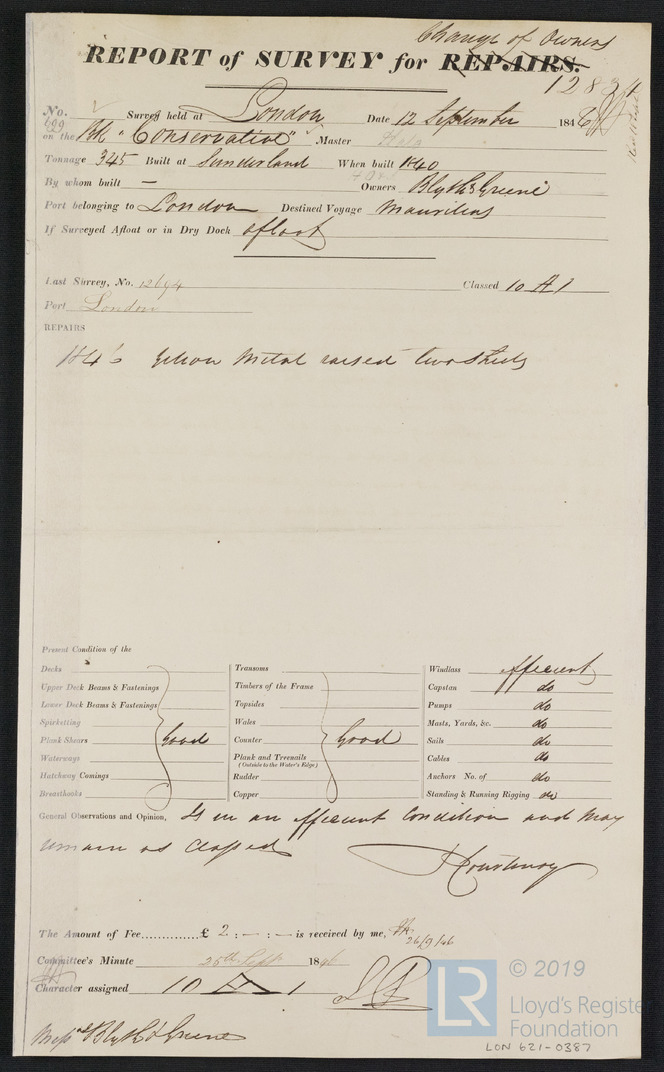 Change of Owners
REPORT of SURVEY for REPAIRS.
12834
No. 699 Survey held at London Date 12 September 1846
on the Bk "Conservative" Master
Tonnage 345 Built at Sunderland When built 1840
By whom built — Owners Blyth & Greene
Port belonging to London Destined Voyage Mauritius
If Surveyed Afloat or in Dry Dock afloat
Last Survey, No. 12694 Classed 10 A 1
Port London
REPAIRS
Yellow Metal raised two Sheets
Present Condition of the
Decks
Upper Deck Beams & Fastenings
Lower Deck Beams & Fastenings
Spirketting
Plank Shears Good
Waterways
Hatchway Comings
Breasthooks
Transoms
Timbers of the Frame
Topsides
Wales
Counter Good
Plank and Treenails
(Outside to the Water's Edge)
Rudder
Copper
Windlass efficient
Capstan do
Pumps do
Masts, Yards, &c. do
Sails do
Cables do
Anchors No. of do
Standing & Running Rigging do
General Observations and Opinion, Is in an efficient Condition and may
remain as Classed
Courtenay
The Amount of Fee............. £ 2 : — : — is received by me,
26/9/46
Committee's Minute 25th Sept 1846
Character assigned 10 A 1
Messrs Blyth & Greene
LR © 2019
Lloyd's Register
Foundation
LON 621-0387